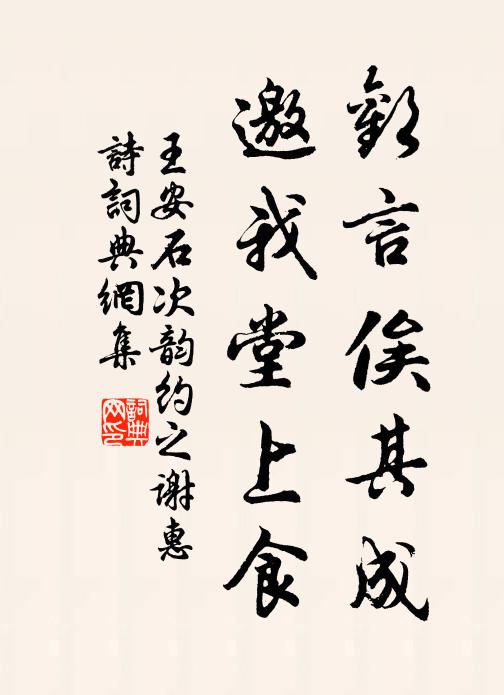 歡言俟其成
邀我堂上食
王安石次韵約之謝惠
詩詞典網集
詞典
网印